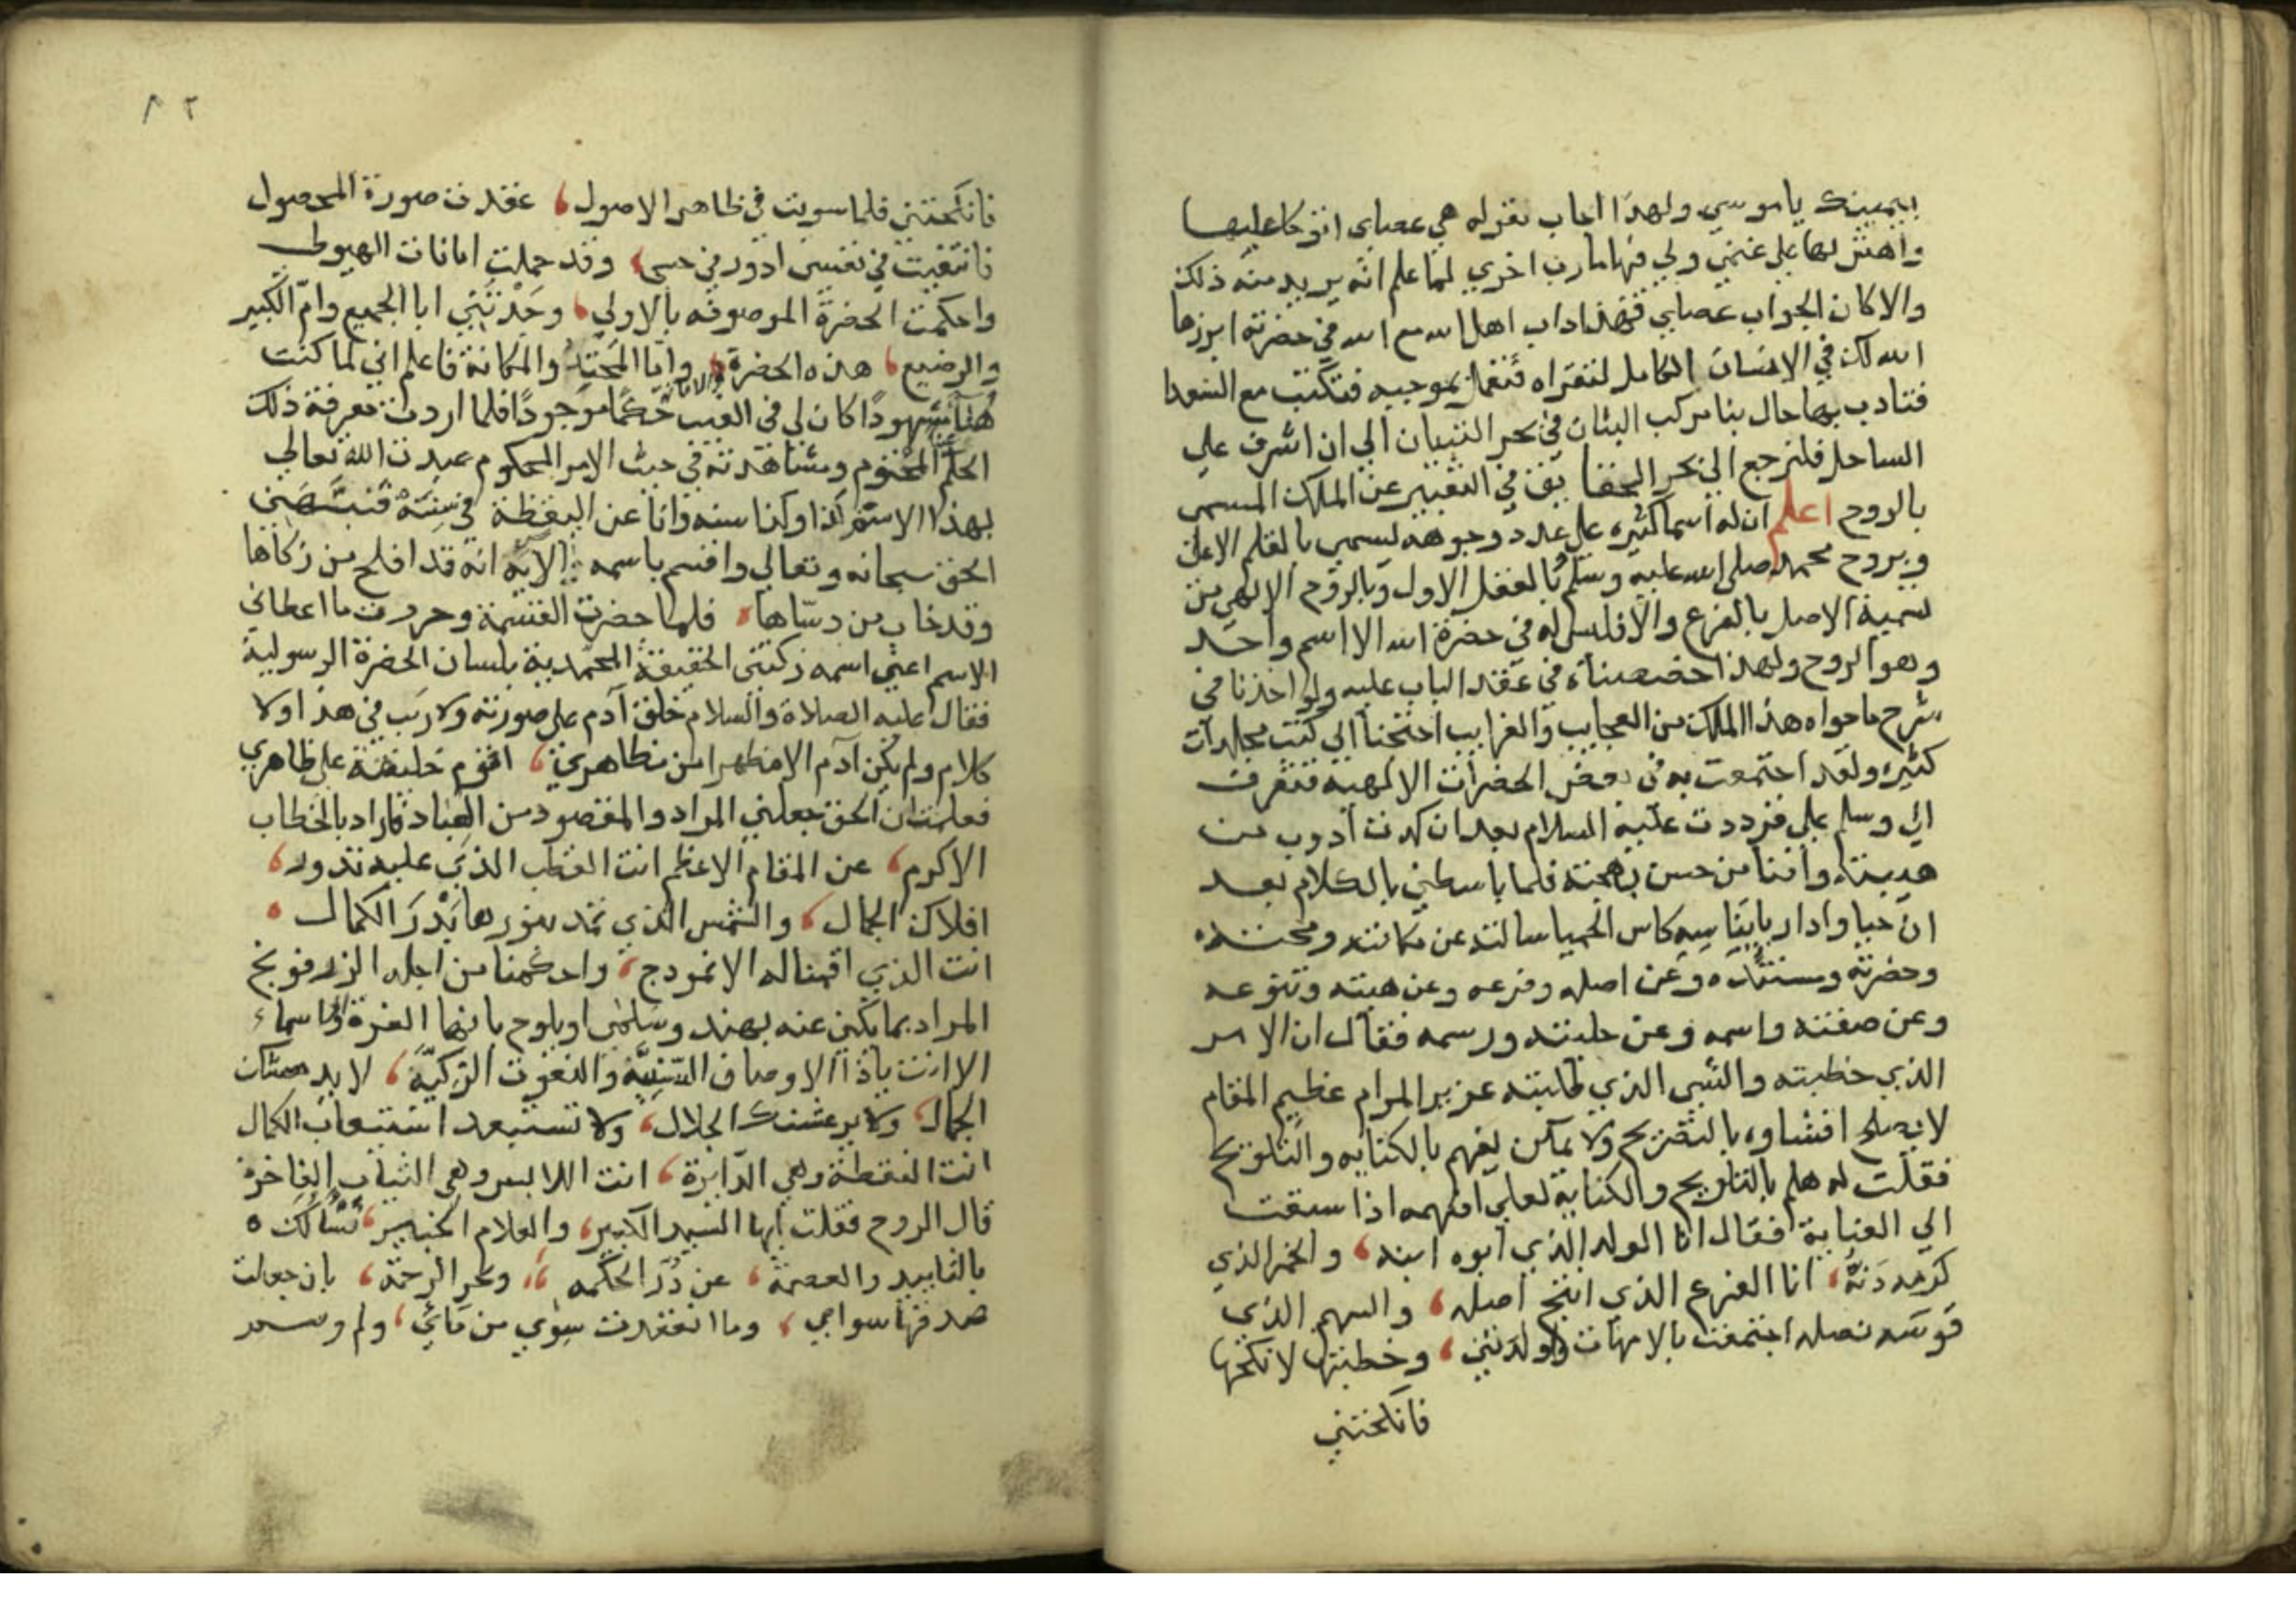 بيمينك ياموسي ولهذا اجاب بقوله هي عصاي اتوكاعليها
واهش بها علي غنمي ولي فيها مارب اخري لما علم انه يريد منه ذلك
والا كان الجواب عصاي فهذا اداب اهل الله مع الله في حضرته ابرزها
الله لك في الانسان الكامل لتقراه فتعمل بموجبه فتكتب مع السعدا
فتادب بها حال بنا مركب البيان في بحر التبيان الي ان اشرف علي
الساحل فلنرجع الي بحر الحقايق في التعبير عن الملك المسمي
بالروح اعلم ان له اسما كثيره علي عدد وجوهه يسمي بالقلم الاعلي
وبروح محمد صلي الله عليه وسلم وبالعقل الاول وبالروح الالهي من
تسمية الاصل بالفرع والا فليس له في حضرة الله الا اسم واحد
وهو الروح ولهذا خصصناه في عقد الباب عليه ولو اخذنا في
شرح ما حواه هذا الملك من العجايب والغرايب احتجنا الي كتب مجلدات
كثيره ولقد اجتمعت به في بعض الحضرات الالهية فتعرف
الي وسلم علي فرددت عليه السلام بعد ان كدت اذوب من
هيبته وافنا من حسن بهجته فلما باسطني بالكلام بعد
ان حيا وادار بايناسه كاس الحميا سالته عن مكانته ومحتده
وحضرته ومستنده وعن اصله وفرعه وعن هيئته وتنوعه
وعن صفته واسمه وعن حليته ورسمه فقال ان الامر
الذي خطبته والشي الذي طلبته عزيز المرام عظيم المقام
لا يصلح افشاوه بالتصريح ولا يمكن يفهم بالكنايه والتلويح
فقلت له هلم بالتلويح والكناية لعلي افهمه اذا سبقت
الي العناية فقال انا الولد الذي ابوه ابنه، والخمر الذي
كرمه دنه، انا الفرع الذي انتج اصله، والسهم الذي
قوسه نصله اجتمعت بالامهات اولدتني، وخطبتها لانكحها
فانكحتني
٨٢
فانكحتني فلما سويت في ظاهر الاصول، عقدت صورة المحصول
فانثنيت في نفسي ادور في حسي، وقد حملت امانات الهيولي
واحكمت الحضرة الموصوفه بالاولي، وجدتني ابا الجميع وام الكبير
والرضيع، هذه الحضرة والامانة، واما المحتد والمكانة فاعلم اني لما كنت
هنا مشهودا كان لي في الغيب حكما موجودا فلما اردت معرفة ذلك
الحكم المختوم ومشاهدته في حيث الامر المحكوم عبدت الله تعالي
بهذا الاسم كذا وكذا سنه وانا عن اليقظة في سِنَة فنبهني
الحق سبحانه وتعالي واقسم باسمه الايه انه قد افلح من زكاها
وقد خاب من دساها، فلما حضرت القسمة وحررت ما اعطاني
الاسم اعني اسمه زكتني الحقيقة المحمدية بلسان الحضرة الرسولية
فقال عليه الصلاة والسلام خلق آدم علي صورته ولا ريب في هذا ولا
كلام ولم يكن آدم الا مظهرا من مظاهري، اقوم خليفة علي ظاهري
فعلمت ان الحق جعلني المراد والمقصود من العباد فاذا بالخطاب
الاكرم، عن المقام الاعظم انت القطب الذي عليه تدور،
افلاك الجمال، والشمس الذي تمد بنورها بدر الكمال،
انت الذي اقمنا له الانموذج، واحكمنا من اجله الزرفونج
المراد بما يكني عنه بهند وسلمي او يلوح بانها العزة واسماء
الا انت ياذا الاوصاف السنية والنعوت الزكية، لا يدهشك
الجمال، ولا يرعشك الجلال، ولا تستبعد استيعاب الكمال
انت النقطة وهي الدايرة، انت اللابس وهي الثياب الفاخرة
قال الروح فقلت ايها السيد الكبير، والعلام الخبير، نسالك
بالتاييد والعصمة، عن درر الحكمه، وبحر الرحمة، بان جعلت
صدفها سواي، وما انعقدت سوي من مائي، ولم وسم